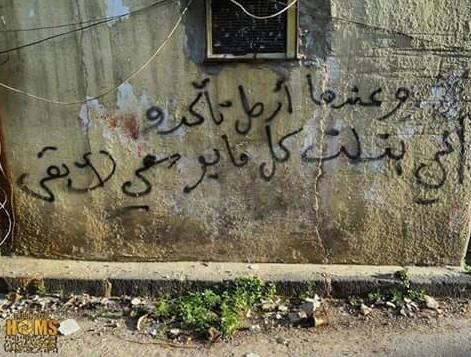 وعندما أرحل تأكدو
اني بذلت كل مابوسعي لأبقى
HOMS